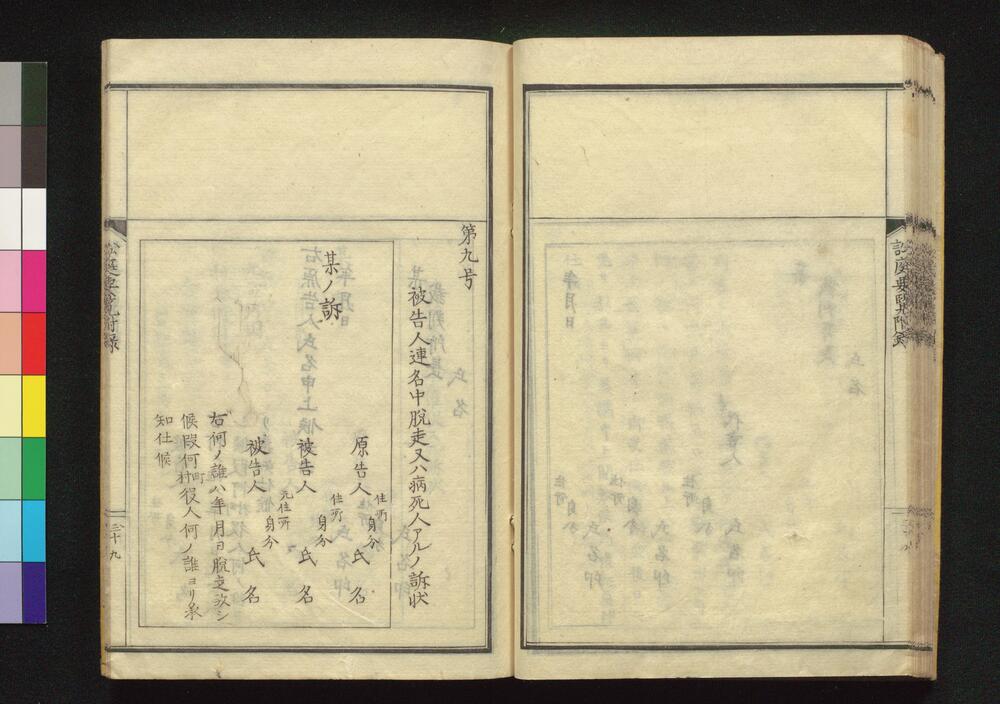 訟庭要覧附録
第九号
被告人連名中脱走又ハ病死人アルノ訴状
某ノ訴
原告人 住所 身分 氏名
被告人 住所 身分 氏名
被告人 元住所 身分 氏名
右何ノ誰ハ年月日脱走致シ
候段何町村役人何ノ誰ヨリ承
知仕候
訟庭要覧附録
三十九